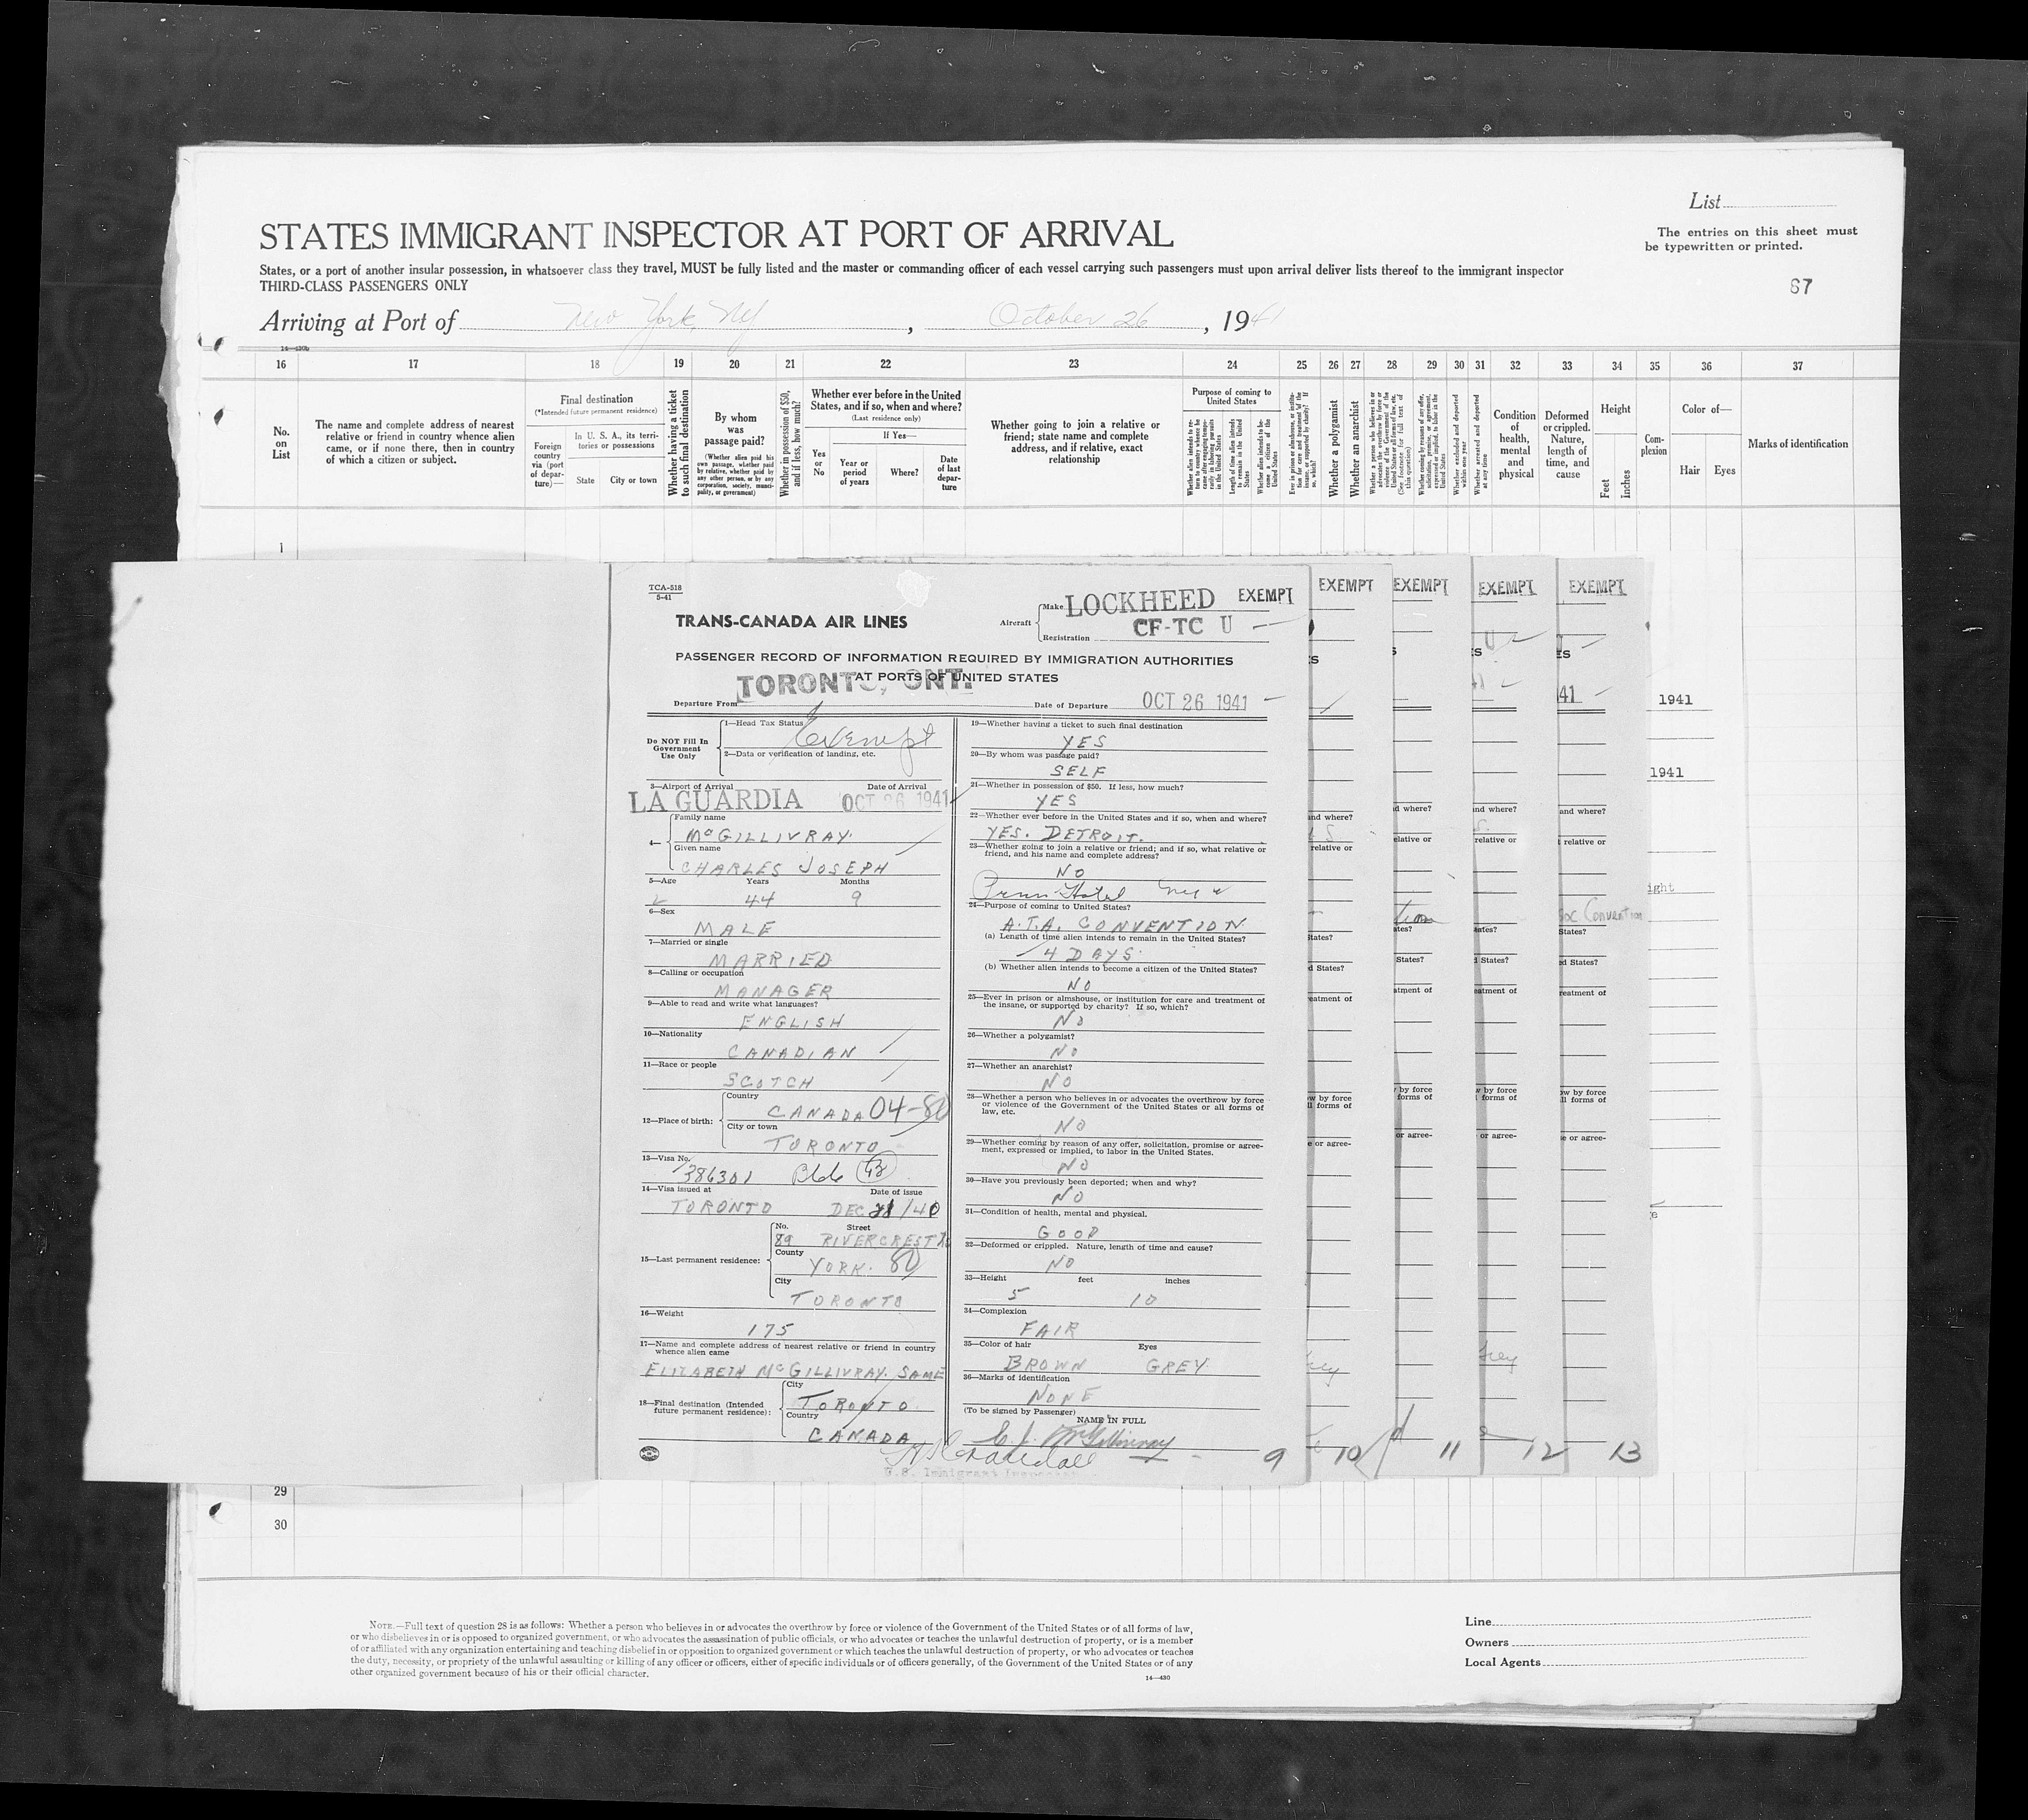 List
STATES IMMIGRANT INSPECTOR AT PORT OF ARRIVAL
The entries on this sheet must
be typewritten or printed.
States, or a port of another insular possession, in whatsoever class they travel, MUST be fully listed and the master or commanding officer of each vessel carrying such passengers must upon arrival deliver lists thereof to the immigrant inspector
THIRD-CLASS PASSENGERS ONLY
67
Arriving at Port of New York, NY, October 26, 1941
14—430b
16 17 18 19 20 21 22 23 24 25 26 27 28 29 30 31 32 33 34 35 36 37
No.
on
List
The name and complete address of nearest
relative or friend in country whence alien
came, or if none there, then in country
of which a citizen or subject.
Final destination
(*Intended future permanent residence)
Foreign
country
via (port
of depar-
ture)—
In U. S. A., its terri-
tories or possessions
State City or town
Whether having a ticket
to such final destination
By whom
was
passage paid?
(Whether alien paid his
own passage, whether paid
by relative, whether paid by
any other person, or by any
corporation, society, munici-
pality, or government)
Whether in possession of $50,
and if less, how much?
Whether ever before in the United
States, and if so, when and where?
(Last residence only)
If Yes—
Yes
or
No
Year or
period
of years
Where?
Date
of last
depar-
ture
Whether going to join a relative or
friend; state name and complete
address, and if relative, exact
relationship
Purpose of coming to
United States
Length of time alien intends
to remain in the United
States
Whether alien intends to be-
come a citizen of the
United States
Whether a polygamist
Whether an anarchist
Whether excluded and deported
within one year
Whether arrested and deported
at any time
Condition
of
health,
mental
and
physical
Deformed
or crippled.
Nature,
length of
time, and
cause
Height
Feet
Inches
Com-
plexion
Color of—
Hair Eyes
Marks of identification
1
TCA-518
5-41
TRANS-CANADA AIR LINES
Aircraft
Make LOCKHEED
Registration CF-TC U
EXEMPT
PASSENGER RECORD OF INFORMATION REQUIRED BY IMMIGRATION AUTHORITIES
AT PORTS OF UNITED STATES
Departure From TORONTO, ONT.
Date of Departure OCT 26 1941
Do NOT Fill In
Government
Use Only
1—Head Tax Status Exempt
2—Data or verification of landing, etc.
3—Airport of Arrival Date of Arrival
LA GUARDIA OCT 26 1941
4—
Family name
McGILLIVRAY
Given name
CHARLES JOSEPH
5—Age Years Months
44 9
6—Sex
MALE
7—Married or single
MARRIED
8—Calling or occupation
MANAGER
9—Able to read and write what languages?
ENGLISH
10—Nationality
CANADIAN
11—Race or people
SCOTCH
12—Place of birth:
Country
CANADA 04-80
City or town
TORONTO
13—Visa No.
386301
14—Visa issued at Date of issue
TORONTO DEC 21/40
15—Last permanent residence:
No. Street
89 RIVERCREST
County
YORK. 80
City
TORONTO
16—Weight
175
17—Name and complete address of nearest relative or friend in country
whence alien came
ELIZABETH McGILLIVRAY. SAME
18—Final destination (Intended
future permanent residence):
City
TORONTO
Country
CANADA
19—Whether having a ticket to such final destination
YES
20—By whom was passage paid?
SELF
21—Whether in possession of $50. If less, how much?
YES
22—Whether ever before in the United States and if so, when and where?
YES. DETROIT.
23—Whether going to join a relative or friend; and if so, what relative or
friend, and his name and complete address?
NO
Penn Hotel
24—Purpose of coming to United States?
A.T.A. CONVENTION
(a) Length of time alien intends to remain in the United States?
4 DAYS
(b) Whether alien intends to become a citizen of the United States?
NO
25—Ever in prison or almshouse, or institution for care and treatment of
the insane, or supported by charity? If so, which?
NO
26—Whether a polygamist?
NO
27—Whether an anarchist?
NO
28—Whether a person who believes in or advocates the overthrow by force
or violence of the Government of the United States or all forms of
law, etc.
NO
29—Whether coming by reason of any offer, solicitation, promise or agree-
ment, expressed or implied, to labor in the United States.
NO
30—Have you previously been deported; when and why?
NO
31—Condition of health, mental and physical.
GOOD
32—Deformed or crippled. Nature, length of time and cause?
NO
33—Height feet inches
5 10
34—Complexion
FAIR
35—Color of hair Eyes
BROWN GREY
36—Marks of identification
NONE
(To be signed by Passenger)
NAME IN FULL
C. J. McGillivray
U.S. Immigrant Inspector
9 10 11 12 13
EXEMPT EXEMPT EXEMPT EXEMPT
1941
1941
Convention
29
30
NOTE.—Full text of question 28 is as follows: Whether a person who believes in or advocates the overthrow by force or violence of the Government of the United States or of all forms of law,
or who disbelieves in or is opposed to organized government, or who advocates the assassination of public officials, or who advocates or teaches the unlawful destruction of property, or is a member
of or affiliated with any organization entertaining and teaching disbelief in or opposition to organized government or which teaches the unlawful destruction of property, or who advocates or teaches
the duty, necessity, or propriety of the unlawful assaulting or killing of any officer or officers, either of specific individuals or of officers generally, of the Government of the United States or of any
other organized government because of his or their official character.
14—430
Line
Owners
Local Agents